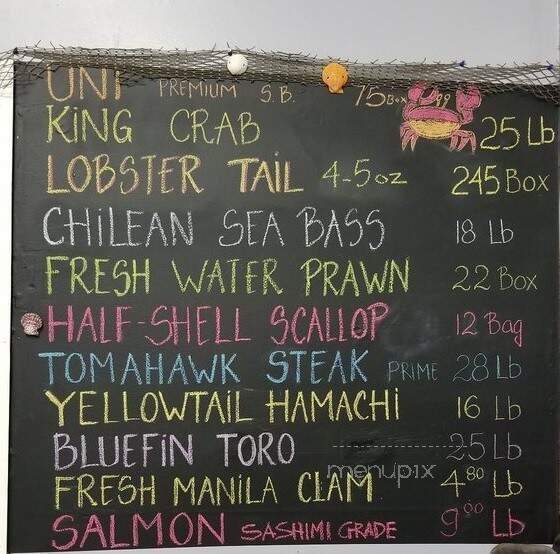 UNI PREMIUM S.B. 75 Box
KING CRAB 25 Lb
LOBSTER TAIL 4-5oz 245 Box
CHILEAN SEA BASS 18 Lb
FRESH WATER PRAWN 22 Box
HALF-SHELL SCALLOP 12 Bag
TOMAHAWK STEAK PRIME 28 Lb
YELLOWTAIL HAMACHI 16 Lb
BLUEFIN TORO 25 Lb
menupix
FRESH MANILA CLAM 4.80 Lb
SALMON SASHIMI GRADE Lb